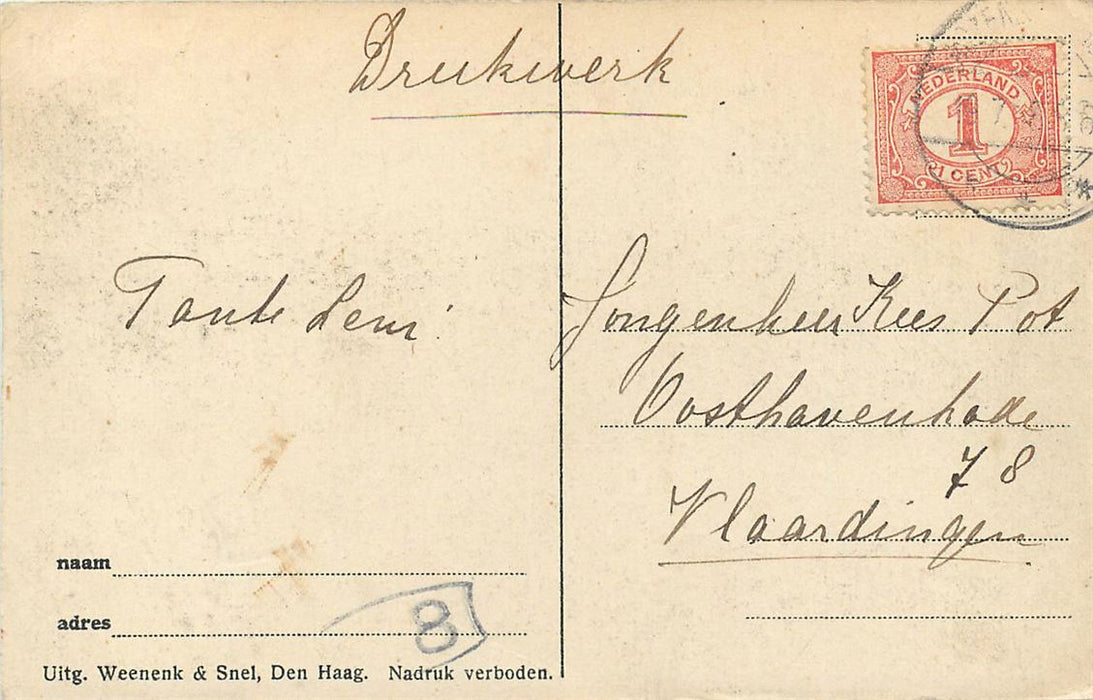 Drukwerk
NEDERLAND
1
1 CENT
Tante Leni
Jongenheer Kees Pot
Oosthavenkade
78
Vlaardingen
naam
adres
8
Uitg. Weenenk & Snel, Den Haag. Nadruk verboden.